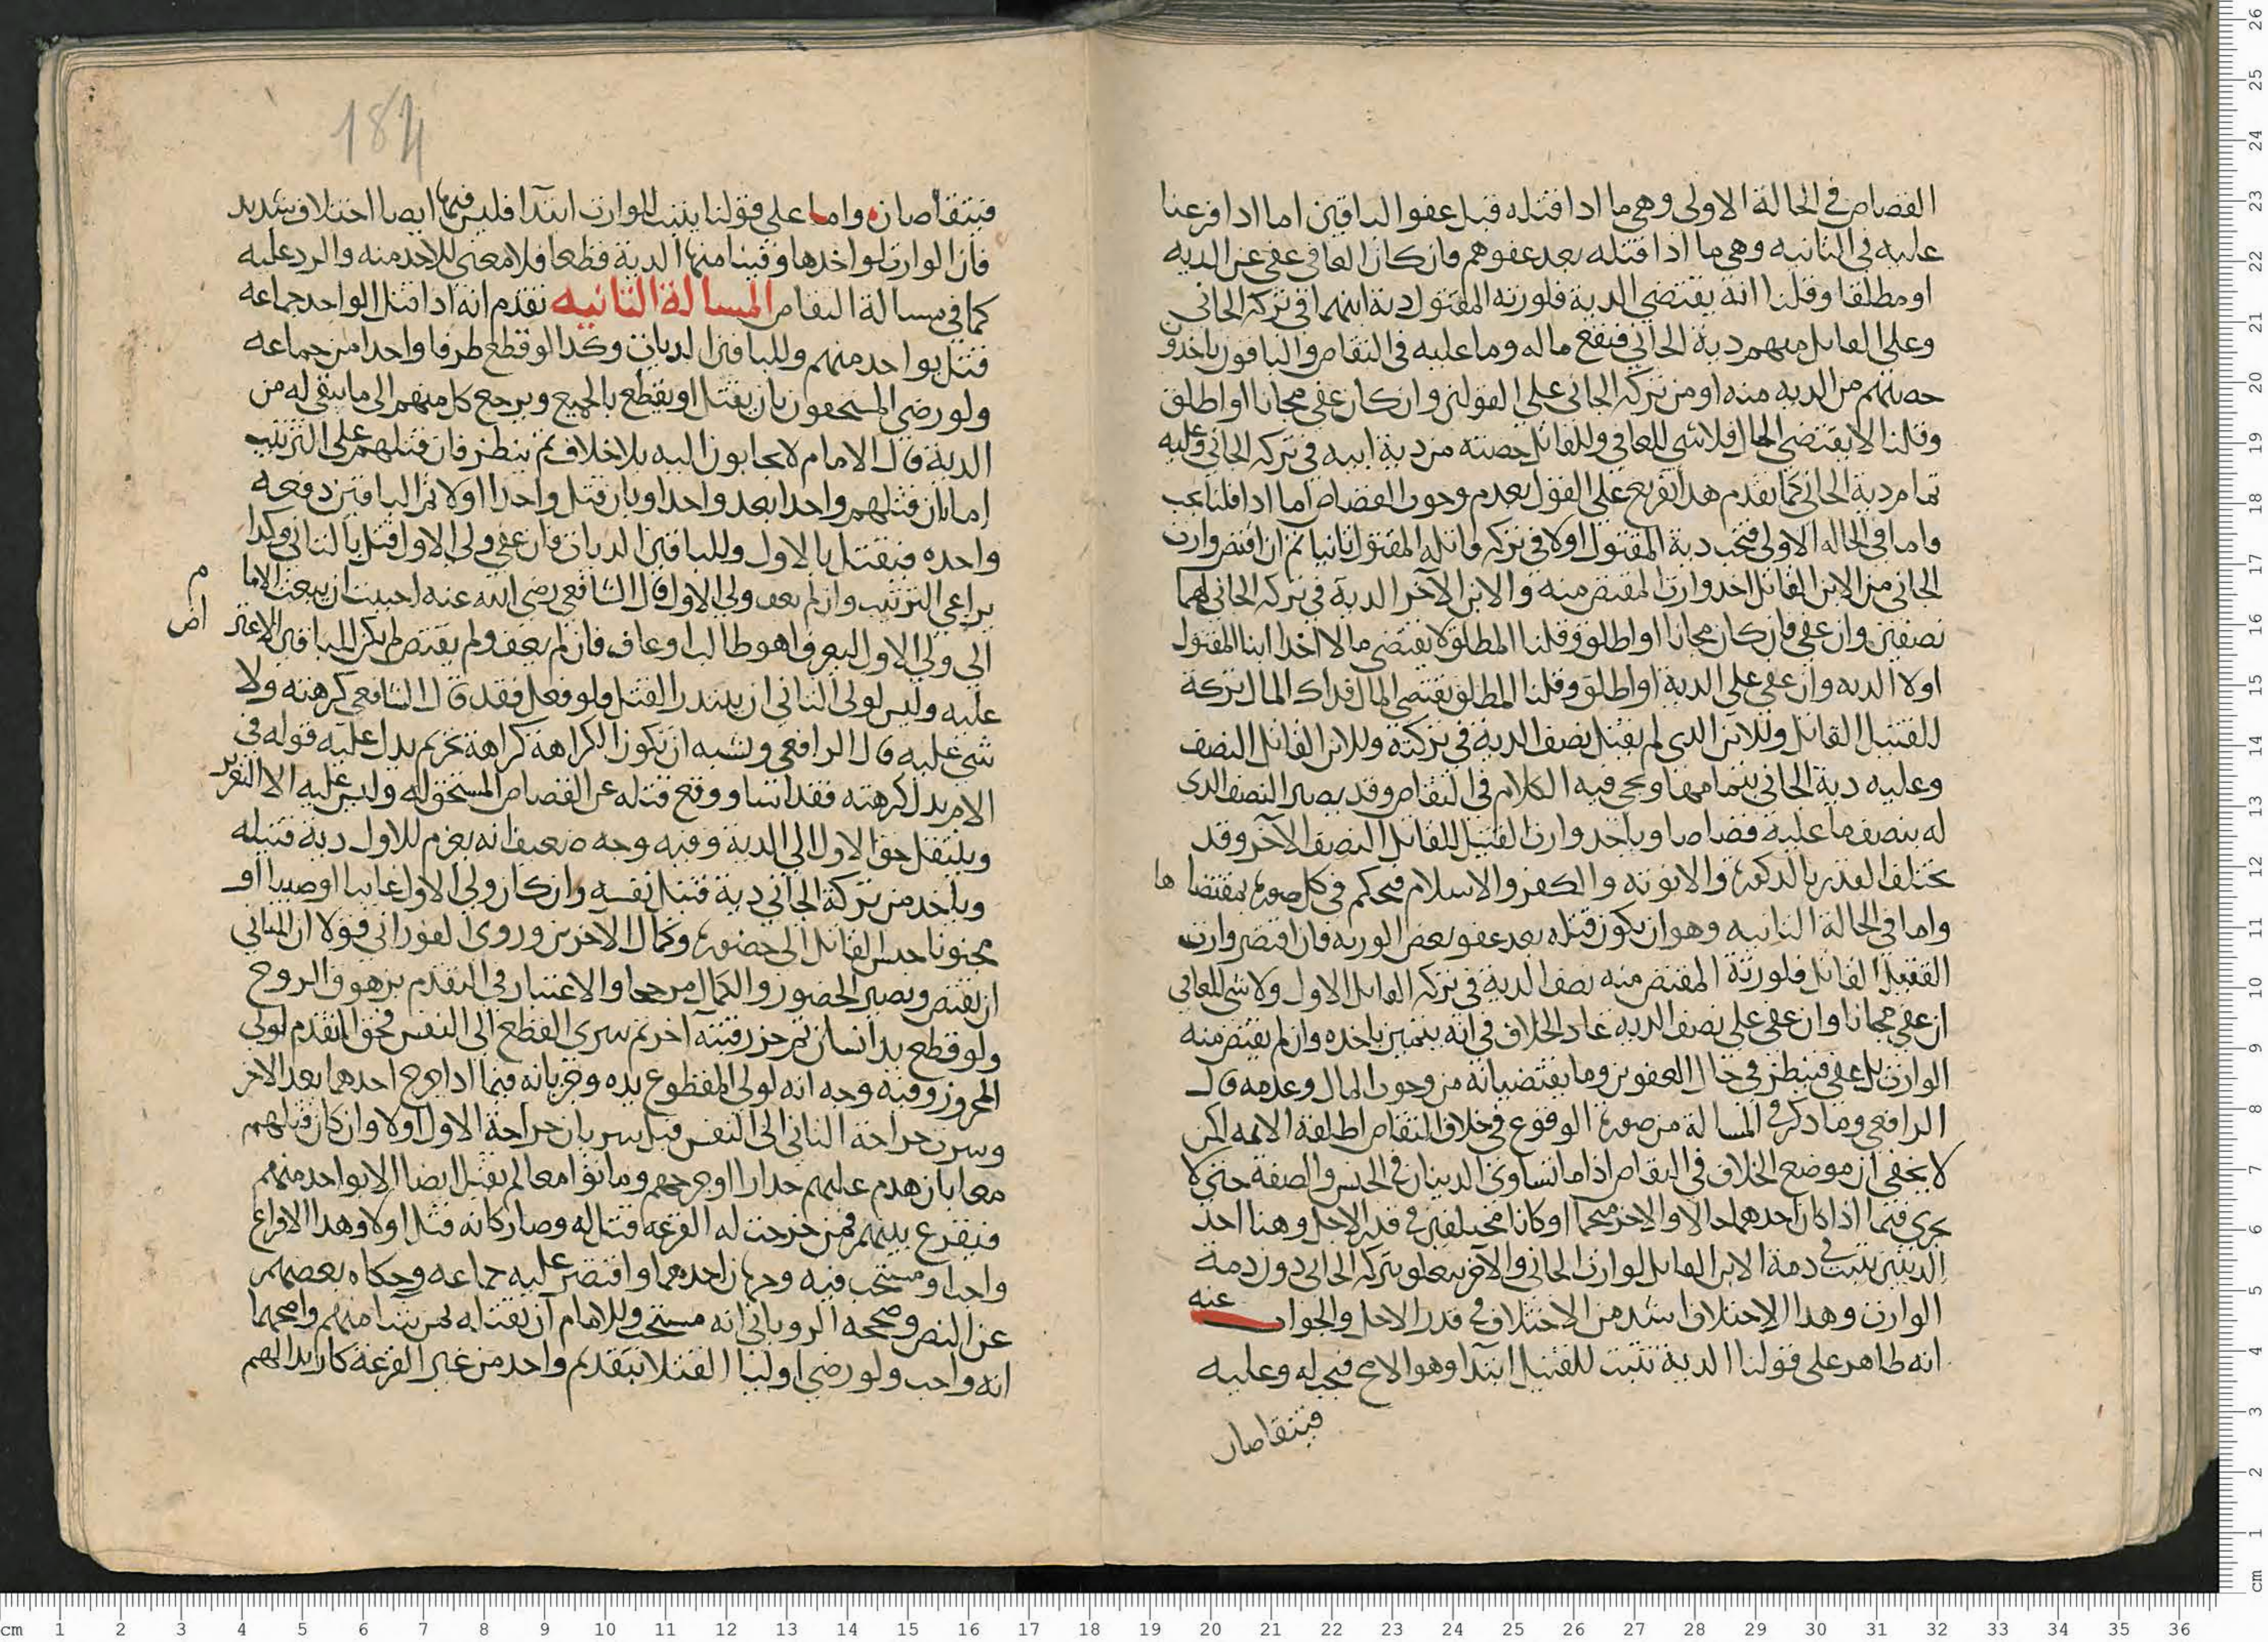 القصاص في الحالة الاولى وهي ما اذا قتله قبل عفو الباقين اما اذا فرعنا
عليه في الثانيه وهي ما اذا قتله بعد عفوهم فان كان العافي عفى عن الديه
او مطلقا وقلنا انه يقتضي الدية فلورثه المقتول دية ابنهما في تركه الجاني
وعلى القاتل منهم دية الجاني فيقع ماله وما عليه في التقاص والباقون ياخذون
حصتهم من الديه منه او من تركه الجاني على القولين وان كان عفى مجانا او اطلق
وقلنا لا يقتضي المال فلا شي للعافي وللقاتل حصته من دية ابيه في تركه الجاني وعليه
تمام دية الجاني كما تقدم هذا تفريع على القول بعدم وجوب القصاص اما اذا قلنا يجب
واما في الحاله الاولى فتجب دية المقتول اولا في تركه قاتله المقتول ثانيا ثم ان اقتص وارث
الجاني من الابن القاتل اخذ وارث المقتص منه والابن الآخر الدية في تركه الجاني لهما
نصفين وان عفى فان كان مجانا او اطلق وقلنا المطلق لا يقتضي مالا اخذ ابنا المقتول
اولا الديه وان عفى على الدية او اطلق وقلنا المطلق يقتضي المال فذاك المال تركة
للقتيل القاتل وللابن الذي لم يقتل نصف الدية في تركته وللابن القاتل النصف
وعليه دية الجاني بتمامها ويجي فيه الكلام في التقاص وقد يصير النصف الذي
له بنصف ما عليه قصاصا وياخذ وارث القتيل للقاتل النصف الآخر وقد
يختلف القدر بالذكورة والانوثه والكفر والاسلام فيحكم في كل صورة بمقتضاها
واما في الحالة الثانيه وهو ان يكون قتله بعد عفو بعض الورثه فان اقتص وارث
القتيل القاتل فلورثة المقتص منه نصف الدية في تركه القاتل الاول ولا شي للعافي
ان عفى مجانا وان عفى على نصف الديه عاد الخلاف في انه يتميز باخذه وان لم يقتص منه
الوارث بل عفى فينظر في حال العفوين وما يقتضيانه من وجوب المال وعدمه قال
الرافعي وما ذكر في المسالة من صورة الوقوع في خلاف التقاص اطلقه الايمه لكن
لا يخفى ان موضع الخلاف في التقاص اذا ما تساوى الدينان في الجنس والصفة حتى لا
يجري فيما اذا كان احدهما حالا والاخر منجما او كانا مختلفين في قدر الاجل وهنا احد
الدينين يثبت في ذمة الابن القاتل لوارث الجاني والآخر يتعلق بتركه الجاني دون ذمة
الوارث وهذا الاختلاف اشد من الاختلاف في قدر الاجل والجواب عنه
انه ظاهر على قولنا الدية تثبت للقتيل ابتدا وهو الاصح فيجب له وعليه
فيتقاصان
184
فيتقاصان واما على قولنا يثبت للوارث ابتدآ فليس فيهما ايضا اختلاف شديد
فان الوارث لو اخذها وقينا منها الدية قطعا فلا معنى للاخذ منه والرد عليه
كما في مسالة التقاص المسالة الثانيه تقدم انه اذا قتل الواحد جماعه
قتل بواحد منهم وللباقين الديات وكذا لو قطع طرفا واحدا من جماعه
ولو رضي المستحقون بان يقتل او يقطع بالجميع ويرجع كل منهم الى ما يبقى له من
الدية قال الامام لا يجابون اليه بلا خلاف ثم ينظر فان قتلهم على الترتيب
اما بان قتلهم واحدا بعد واحد او بان قتل واحدا اولا ثم الباقين دفعه
واحده فيقتل بالاول وللباقين الديات فان عفى ولي الاول قتل بالثاني وكذا
يراعي الترتيب وان لم يعف ولي الاول قال الشافعي رضي الله عنه احببت ان يبعث الامام
الى ولي الاول ليعرف اهو طالب او عاف فان لم يعف ولم يقتص لم يكن للباقين الاعتراض
عليه وليس لولي الثاني ان يبتدر القتل فلو فعل فقد قال الشافعي كرهته ولا
شي عليه قال الرافعي ويشبه ان تكون الكراهة كراهة تحريم يدل عليه قوله في
الام بدل كرهته فقد اسا ووقع قتله عن القصاص المستحق له وليس عليه الا التعزير
وينتقل حق الاول الى الدية وفيه وجه ضعيف انه يغرم للاول دية قتيله
وياخذ من تركة الجاني دية قتيل نفسه وان كان ولي الاول غايبا او صبيا او
مجنونا حبس القاتل الى حضوره وكمال الاخرين وروى الفوراني قولا ان للثاني
ان يقتص ويصير الحضور والكمال مرجحا والاعتبار في التقدم بزهوق الروح
ولو قطع يد انسان ثم حز رقبته آخر ثم سرى القطع الى النفس فحق التقدم لولي
المحزوز وفيه وجه انه لولي المقطوع يده وجريانه فيما اذا جرح احدهما بعد الاخر
وسرت جراحة الثاني الى النفس قبل سريان جراحة الاول اولا وان كان قتلهم
معا بان هدم عليهم جدارا او جرحهم وماتوا معا لم يقتل ايضا الا بواحد منهم
فيقرع بينهم فمن خرجت له القرعه قتل له وصار كانه قتل اولا وهذا الاقراع
واجب او مستحب فيه وجهان احدهما واقتصر عليه جماعه وحكاه بعضهم
عن النص وصححه الروياني انه مستحب وللامام ان يقتله لمن شا منهم واصحهما
انه واجب ولو رضي اوليا القتلا بتقديم واحد من غير القرعة كان بدا لهم